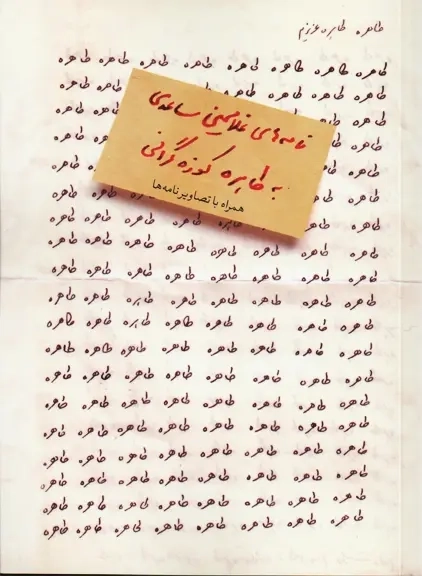 طاهره، طاهره عزیزم
طاهره طاهره طاهره طاهره طاهره طاهره طاهره طاهره
طاهره طاهره طاهره طاهره طاهره طاهره طاهره
طاهره طاهره
نامه‌های غلامحسین ساعدی
طاهره طاهره
به طاهره کوزه‌گرانی
طاهره طاهره
همراه با تصاویر نامه‌ها
طاهره طاهره طاهره
طاهره طاهره طاهره طاهره طاهره طاهره طاهره طاهره
طاهره طاهره طاهره طاهره طاهره طاهره طاهره طاهره
طاهره طاهره طاهره طاهره طاهره طاهره طاهره طاهره
طاهره طاهره طاهره طاهره طاهره طاهره طاهره طاهره
طاهره طاهره طاهره طاهره طاهره طاهره طاهره طاهره
طاهره طاهره طاهره طاهره طاهره طاهره طاهره طاهره
طاهره طاهره طاهره طاهره طاهره طاهره طاهره طاهره
طاهره طاهره طاهره طاهره طاهره طاهره طاهره طاهره
طاهره طاهره طاهره طاهره طاهره طاهره طاهره طاهره
طاهره طاهره طاهره طاهره طاهره طاهره طاهره طاهره
طاهره طاهره طاهره طاهره طاهره طاهره طاهره طاهره
طاهره طاهره طاهره طاهره طاهره طاهره طاهره طاهره
طاهره طاهره طاهره طاهره طاهره طاهره طاهره طاهره